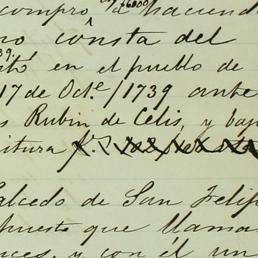 compro
no cónsta del
en el pueblo de
17 de Octe/1739 ante
s Rubin de Celis, y baj
itura
Salcedo de San Felip
puesto que llama
nces, y con él un